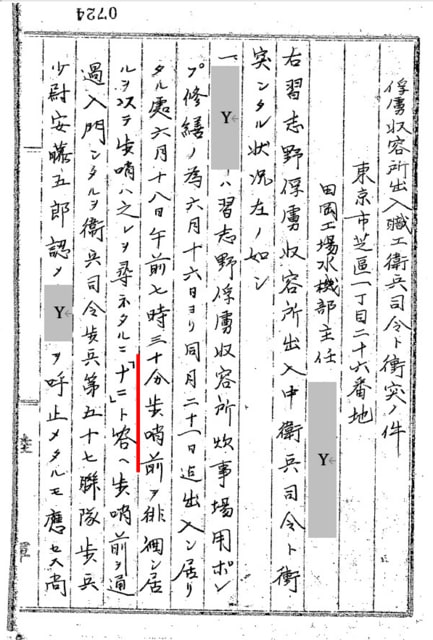 0724
俘虜収容所出入職工衛兵司令ト衝突ノ件
東京市芝區一丁目二十六番地
田岡工場水機部主任 Y
右習志野俘虜収容所出入中衛兵司令ト衝
突シタル状況左ノ如シ
一、Y ハ習志野俘虜収容所炊事場用ポン
プ修繕ノ為六月十六日ヨリ同月二十一日迄出入シ居リ
タル處六月十八日午前七時三十分歩哨前ヲ徘徊シ居
ルヲ以テ歩哨ハ之レヲ尋ネタルニ「ナニ」ト答ヘ歩哨前ヲ通
過入門シタルヲ衛兵司令歩兵第五十七聯隊歩兵
少尉安藤五郎認メ Y ヲ呼止メタルモ應セス尚
陸軍